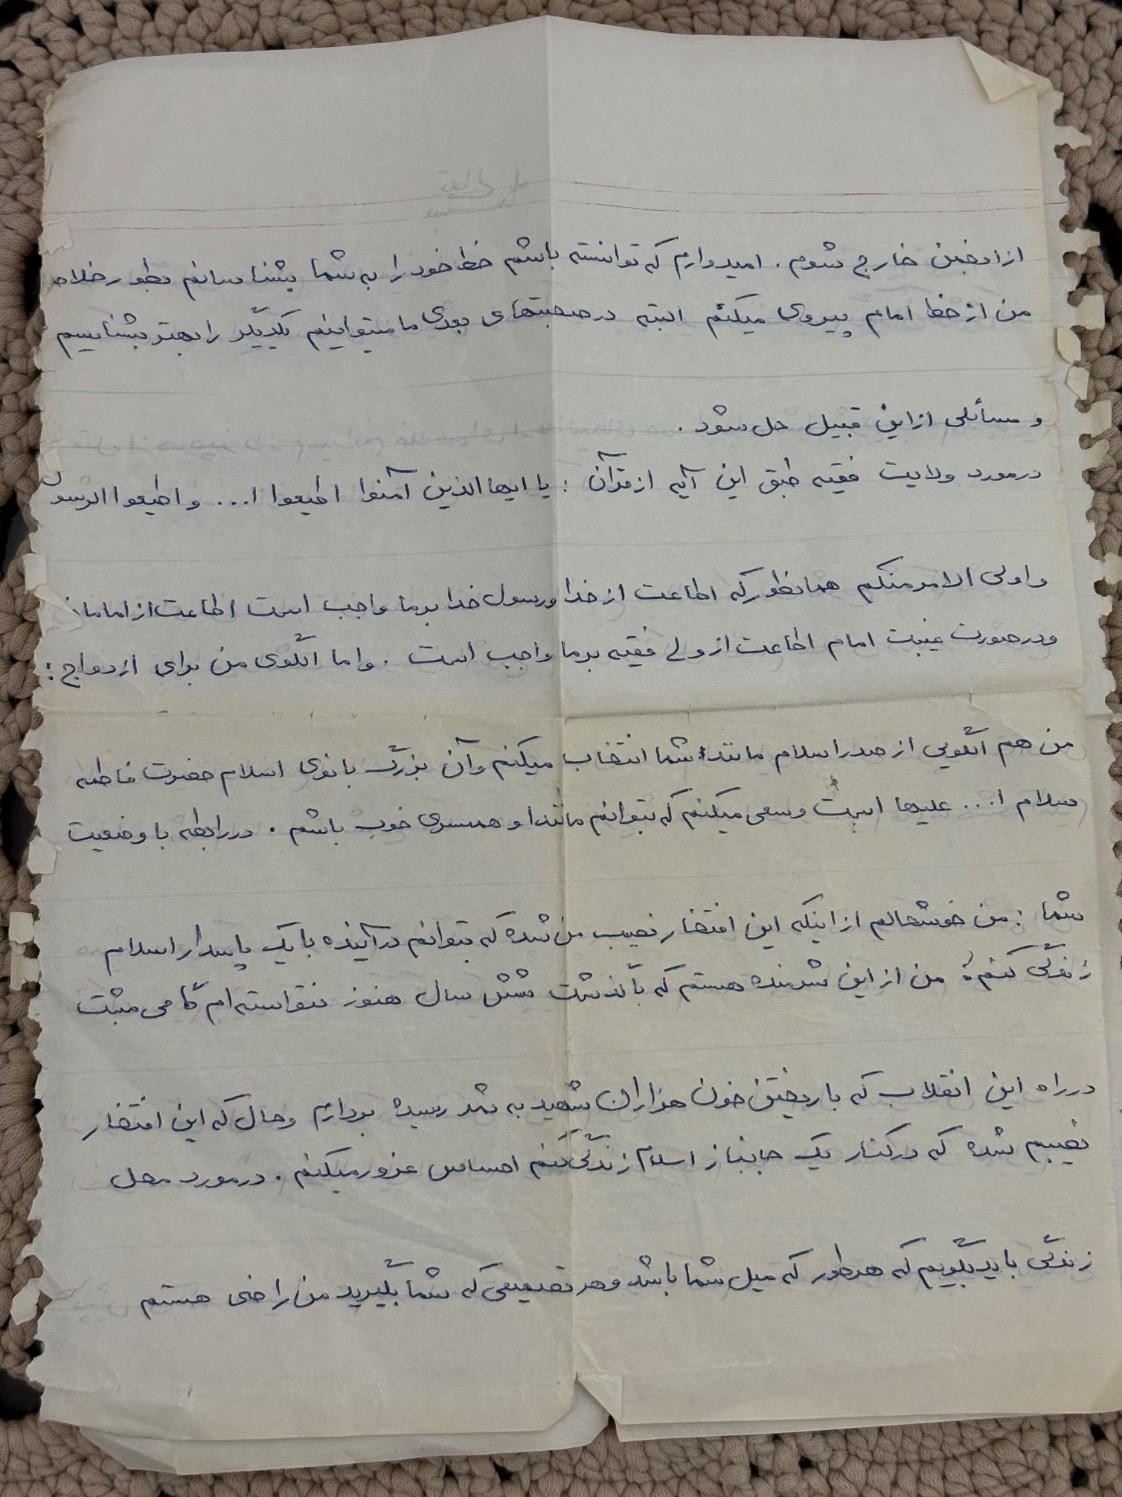 از انجمن خارج شوم . امیدوارم که توانسته باشم خط خود را به شما بشناسانم بطور خلاصه
من از خط امام پیروی میکنم البته در صحبتهای بعدی ما میتوانیم یکدیگر را بهتر بشناسیم
و مسائلی از این قبیل حل شود .
در مورد ولایت فقیه طبق این آیه از قرآن : یا ایها الذین آمنوا اطیعوا ا... و اطیعوا الرسول
و اولی الامر منکم همانطور که اطاعت از خدا و رسول خدا بر ما واجب است اطاعت از امامان
و در صورت غیبت امام اطاعت از ولی فقیه بر ما واجب است . و اما الگوی من برای ازدواج :
من هم الگویی از صدر اسلام مانند شما انتخاب میکنم و آن بزرگ بانوی اسلام حضرت فاطمه
سلام ا... علیها است و سعی میکنم که بتوانم مانند او همسری خوب باشم . در رابطه با وضعیت
شما : من خوشحالم از اینکه این افتخار نصیب من شده که بتوانم در آینده با یک پاسدار اسلام
زندگی کنم . من از این شرمنده هستم که با گذشت شش سال هنوز نتوانسته ام گامی مثبت
در راه این انقلاب که با ریختن خون هزاران شهید به ثمر رسیده بردارم و حال که این افتخار
نصیبم شده که در کنار یک جانباز اسلام زندگی کنم احساس غرور میکنم . در مورد محل
زندگی باید بگویم که هر طور که میل شما باشد و هر تصمیمی که شما بگیرید من راضی هستم